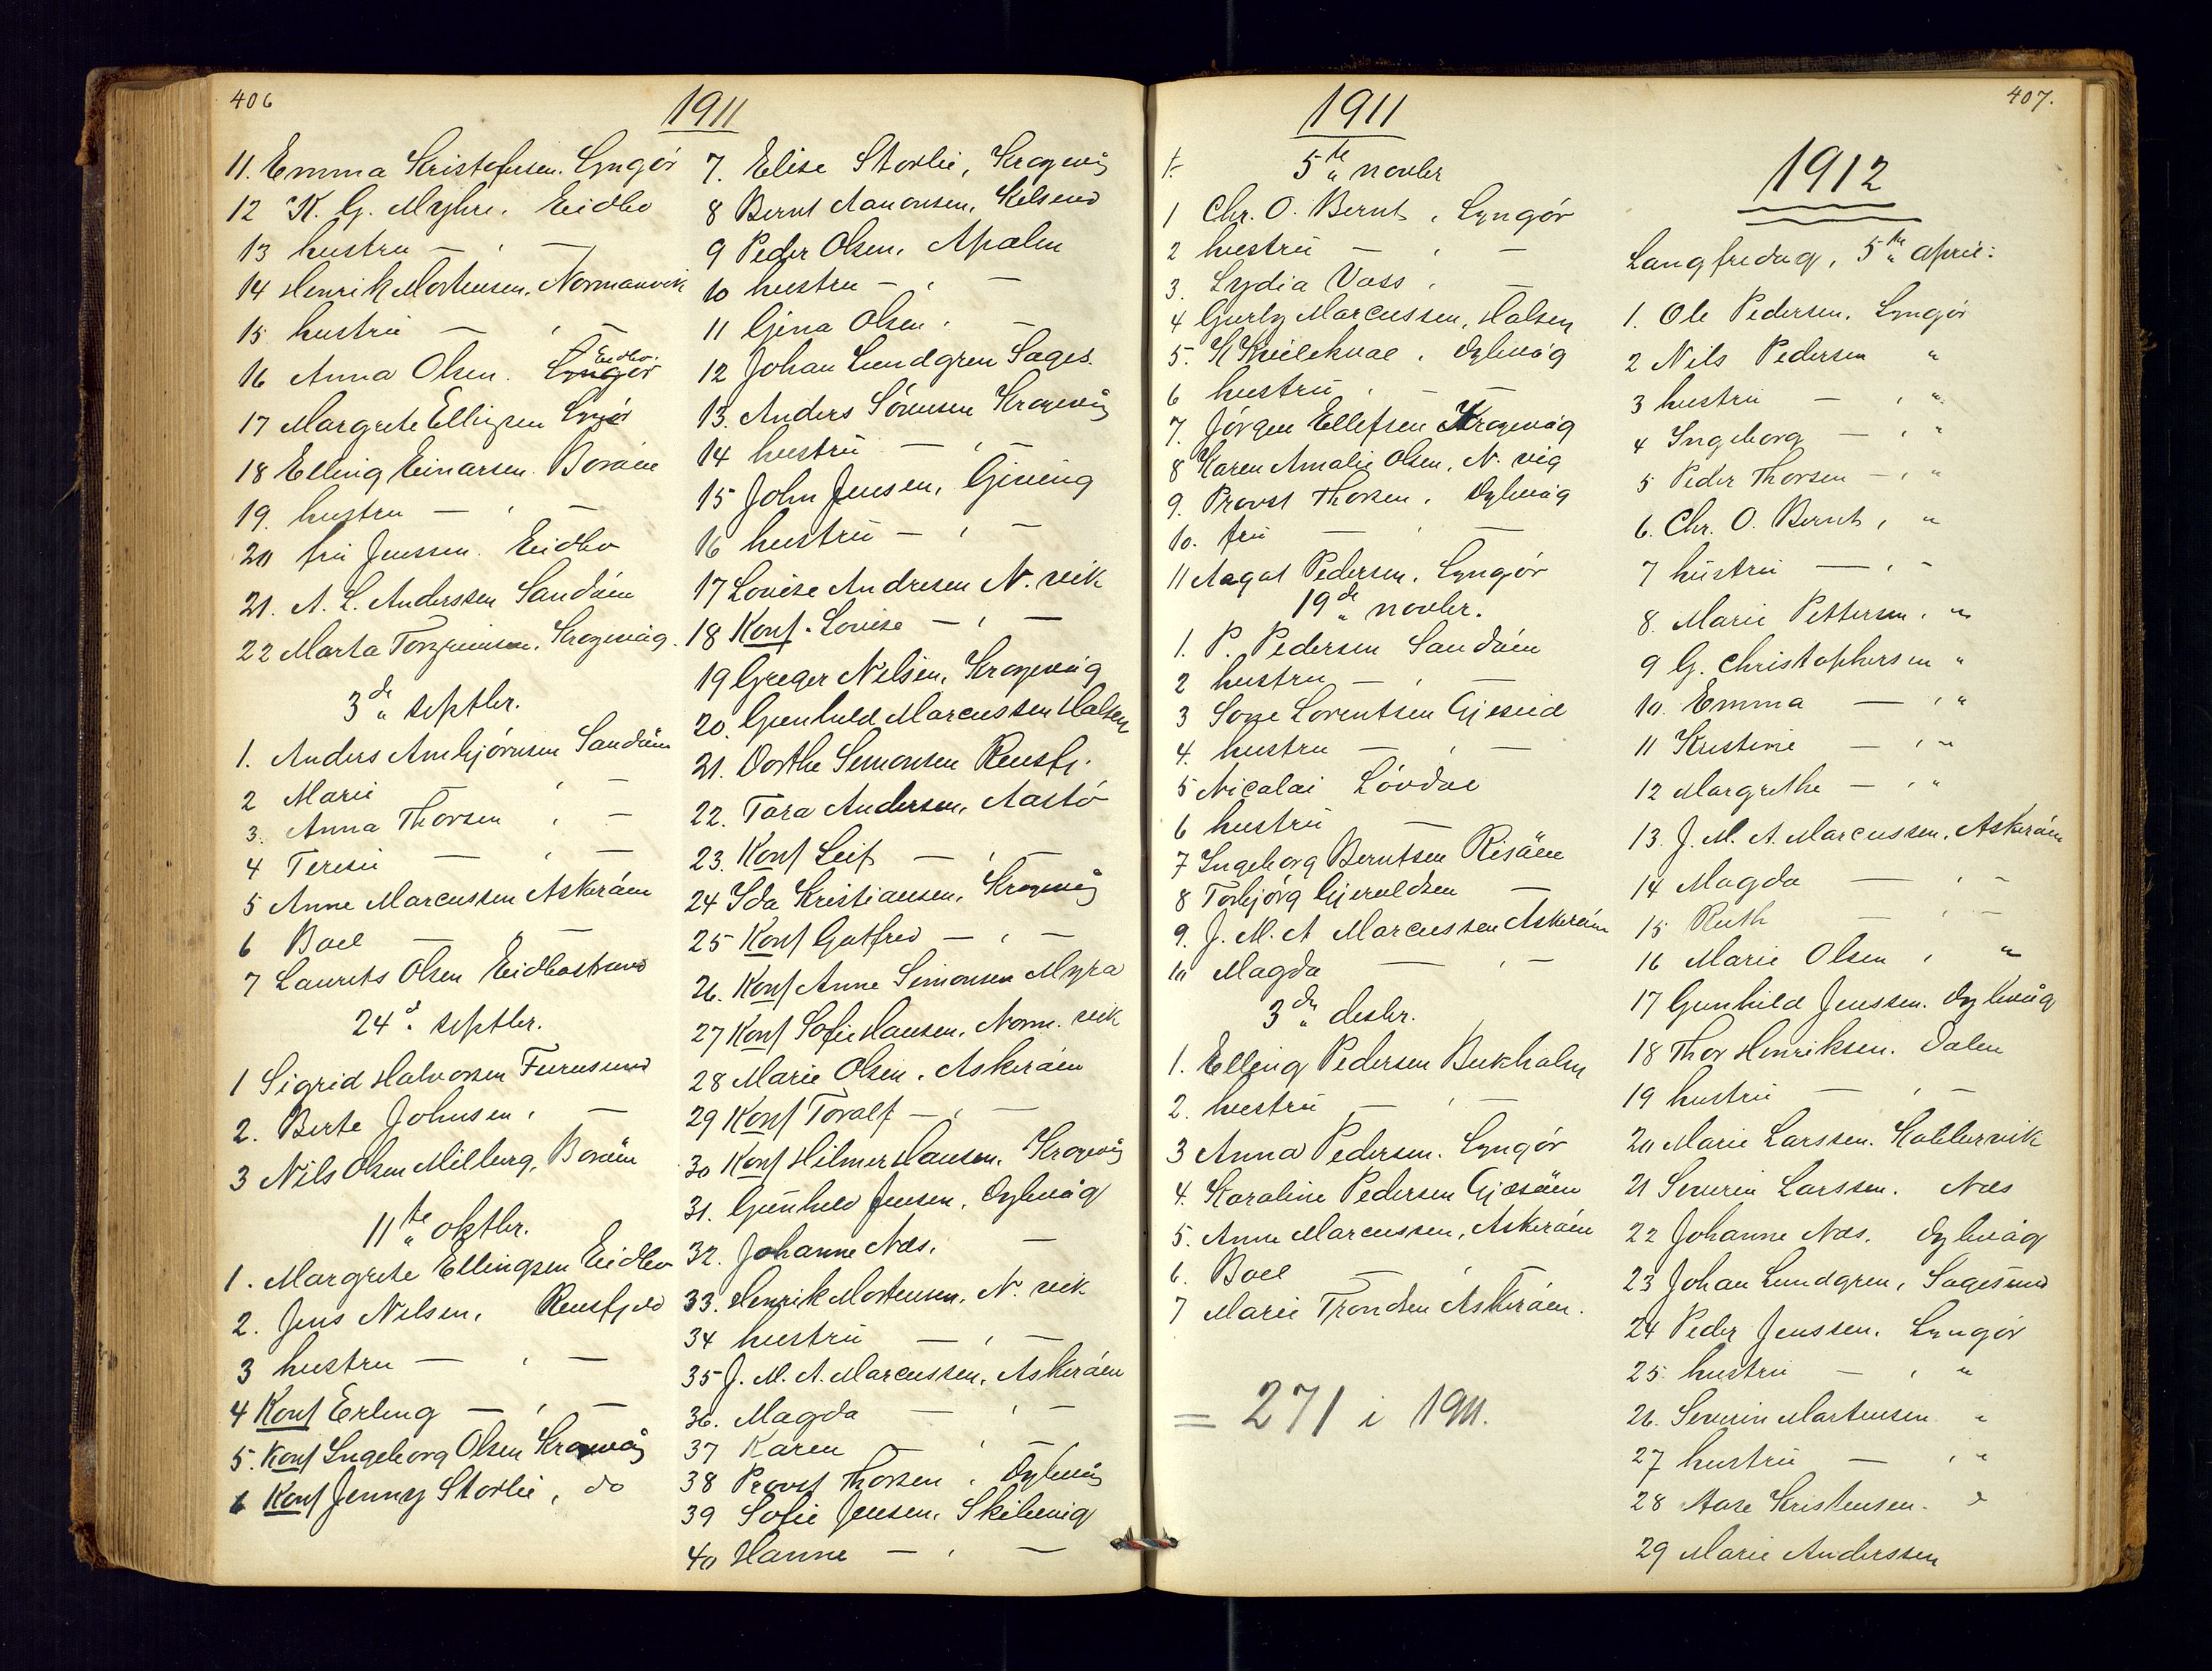 406
1911
11. Emma Kristofersen. Lyngör
12 K. G. Myhre. Eidbo
13 hustru — , —
14 Henrik Mortensen. Normanvik
15 hustru — , —
Eidbo.
16 Anna Olsen. Lyngör
17 Margrete Ellingsen Lyngör
18 Elling Einarsen Boröen
19. hustru — , —
20 fru Jenssen. Eidbo
21. A. L. Anderssen Sandöen
22 Marta Kragevåg.
3de septbr.
1. Anders Ambjörnsen Sandöen
2 Marie , —
3. Anna Thorsen , —
4 Teresie — , —
5 Anne Marcussen Askeröen
6 Boel — " —
7 Laurits Olsen Eidbostrand
24d. septbr.
1 Sigrid Halvorsen Furusund
2. Berte Johnsen , —
3 Nils Olsen Milberg, Boröen
11te oktbr.
1. Margrete Ellingsen Eidbo
2. Jens Nilsen, Reusfjeld
3 hustru — , —
4 Konf Erling — , —
5. Konf Ingeborg Olsen Kragevåg
6 Konf Jenny Storlie, do
7. Elise Storlie, Kragevåg
8 Bernt Aanonsen, Kilsund
9 Peder Olsen, Apalen
10 hustru — , —
11 Gjina Olsen , —
12 Johan Lundgren Sages.
13. Anders Sörensen Kragevåg
14 hustru — , —
15 John Jensen, Gjeving
16 hustru — , —
17 Lovise Andresen N. vik
18 Konf. Lovise — , —
19 Greger Nilsen, Kragevåg
20. Gunhild Marcussen Halsen
21. Dorthe Simonsen Reusfj.
22. Tara Andersen, Aastö
23. Konf Leif — , —
24 Ida Kristiansen, Kragevåg
25 Konf Gotfred — , —
26. Konf Anne Simonsen Myra
27 Konf Sofie Hansen, Norm. vik
28 Marie Olsen, Askeröen
29 Konf Toralf — , —
30 Konf Hilmer Hansen, Kragevåg
31. Gunhild Jensen, Dybvåg
32. Johanne Næs, —
33. Henrik Mortensen, N. vik
34 hustru — , —
35 J. M. A. Marcussen, Askeröen
36. Magda — , —
37 Karen — , —
38 Provst Thorsen , Dybvåg
39 Sofie Jensen, Skibvig
40 Hanne — , —
407.
1911
5te novbr
1 Chr. O. Bernt , Lyngör
2 hustru — , —
3. Lydia Voss , —
4 Gurly Marcussen, Halsen
5. K Kvilekval , Dybvåg
6 hustru , — —
7. Jörgen Ellefsen Kragevåg
8 Karen Amalie Olsen, N. vig
9. Provst Thorsen, Dybvåg
10. fru — , —
11 Aagot Pedersen, Lyngör
19de novbr.
1. P. Pedersen Sandöen
2 hustru — , —
3 Lorentsen
4. hustru — , —
5 Nicolai Lövdal
6 hustru —
7 Ingeborg Berntsen Risöen
8 Torbjörg Gjeruldsen —
9. J. M. A Marcussen Askeröen
10 Magda — , —
3de desbr.
1. Elling Pedersen Bukholm
2. hustru — , —
3 Anna Pedersen. Lyngör
4. Karoline Pedersen Gjæsöen
5. Anne Marcussen, Askeröen
6. Boel — , —
7 Marie Trondsen Askeröen.
= 271 i 1911.
1912
Langfredag, 5te april:
1. Ole Pedersen. Lyngör
2 Nils Pedersen "
3 hustru — , "
4 Ingeborg — , "
5 Peder Thorsen — , "
6. Chr. O. Bernt, "
7 hustru — , -
8. Marie Pettersen, "
9 G. Christophersen "
10. Emma — , "
11 Kristine — , "
12 Margrethe — , "
13. J. M. A. Marcussen, Askeröen
14 Magda — , -
15 Ruth — , -
16 Marie Olsen , "
17 Gunhild Jenssen. Dybvåg
18 Thor Henriksen. Dalen
19 hustru — , —
20 Marie Larssen. Kattervik
21 Severin Larssen. Næs
22 Johanne Næs. Dybvåg
23 Johan Lundgren, Sagesund
24 Peder Jenssen. Lyngör
25. hustru — , "
26. Severin Martensen "
27 hustru — , "
28 Aase Kristensen. "
29 Marie Anderssen